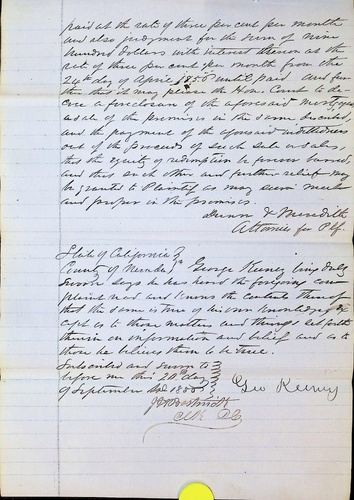 paid at the rate of three per cent per month
and also judgment for the sum of nine
hundred dollars with interest thereon at the
rate of three per cent per month from the
24th day of April 1855 until paid and fur
ther that it may please the Hon. Court to de-
cree a foreclosure of the aforesaid mortgage
a sale of the premises in the same described,
and the payment of the aforesaid indebtedness
out of the proceeds of such sale or sales,
that the equity of redemption be forever barred,
and that such other and further relief may
be granted to Plaintiff as may seem meet
and proper in the premises.
Dunn & Meredith
Attornies for Plf.
State of California
County of Nevada George Keeney being duly
sworn says he has heard the foregoing com
plaint read and knows the contents thereof
that the same is true of his own knowledge ex
cept as to those matters and things set forth
therein on information and belief and as to
those he believes them to be true.
Subscribed and sworn to
before me this 20th day
of September AD 1855
Geo Keeney
Clk